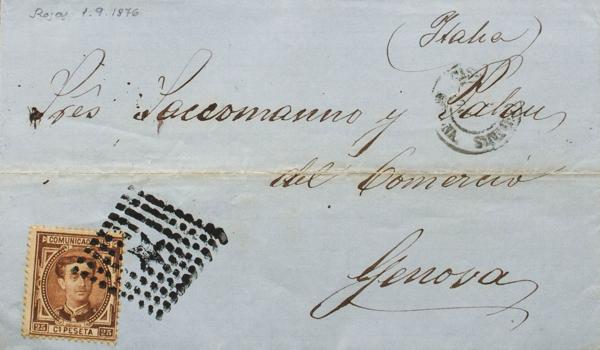 Rosas 1.9.1876
(Italia)
Srês Saccomanno y Palau
del Comercio
Genova
COMUNICACIONES
25 CS PESETA 25